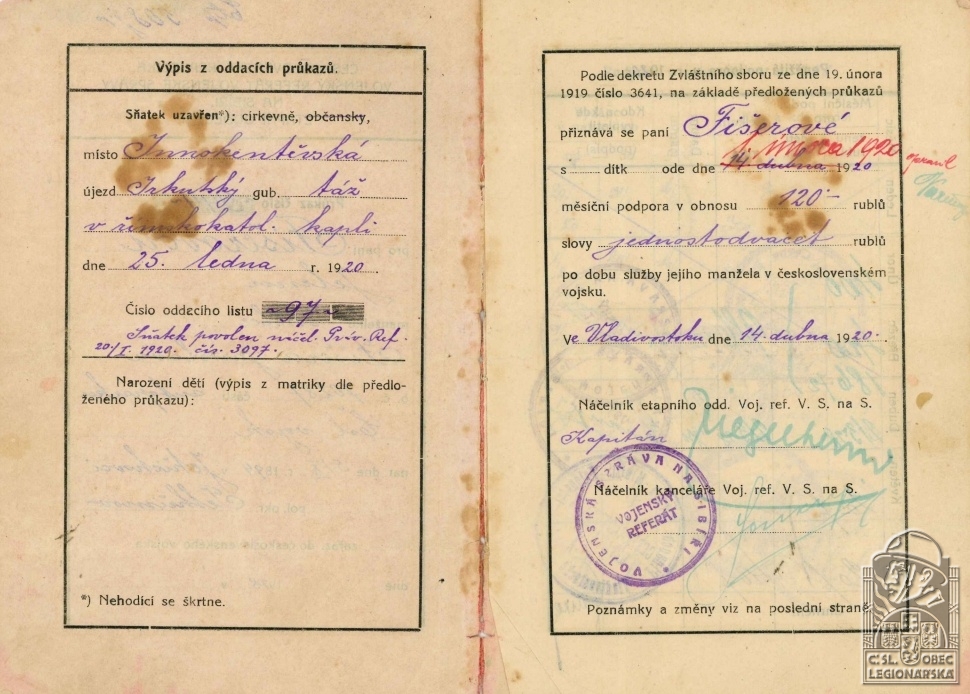 Výpis z oddacích průkazů.
Sňatek uzavřen*): církevně, občansky,
místo Innokentěvská
újezd Irkutský gub. táž
v římskokatol. kapli
dne 25. ledna r. 1920.
Číslo oddacího listu 97
Sňatek povolen náčel. Práv. Ref.
20/I. 1920. čís. 3097.
Narození dětí (výpis z matriky dle předlo-
ženého průkazu):
*) Nehodící se škrtne.
Podle dekretu Zvláštního sboru ze dne 19. února
1919 číslo 3641, na základě předložených průkazů
přiznává se paní Fišerové
1. února 1920
s dítk ode dne 14 dubna 1920
měsíční podpora v obnosu 120- rublů
slovy jednostodvacet rublů
po dobu služby jejího manžela v československém
vojsku.
Ve Vladivostoku dne 14. dubna 1920.
Náčelník etapního odd. Voj. ref. V. S. na S.
Kapitán
Náčelník kanceláře Voj. ref. V. S. na S.
VOJENSKÁ SPRÁVA NA SIBIŘI
VOJENSKÝ
REFERÁT
Poznámky a změny viz na poslední straně.
ČSL. OBEC
LEGIONÁŘSKÁ